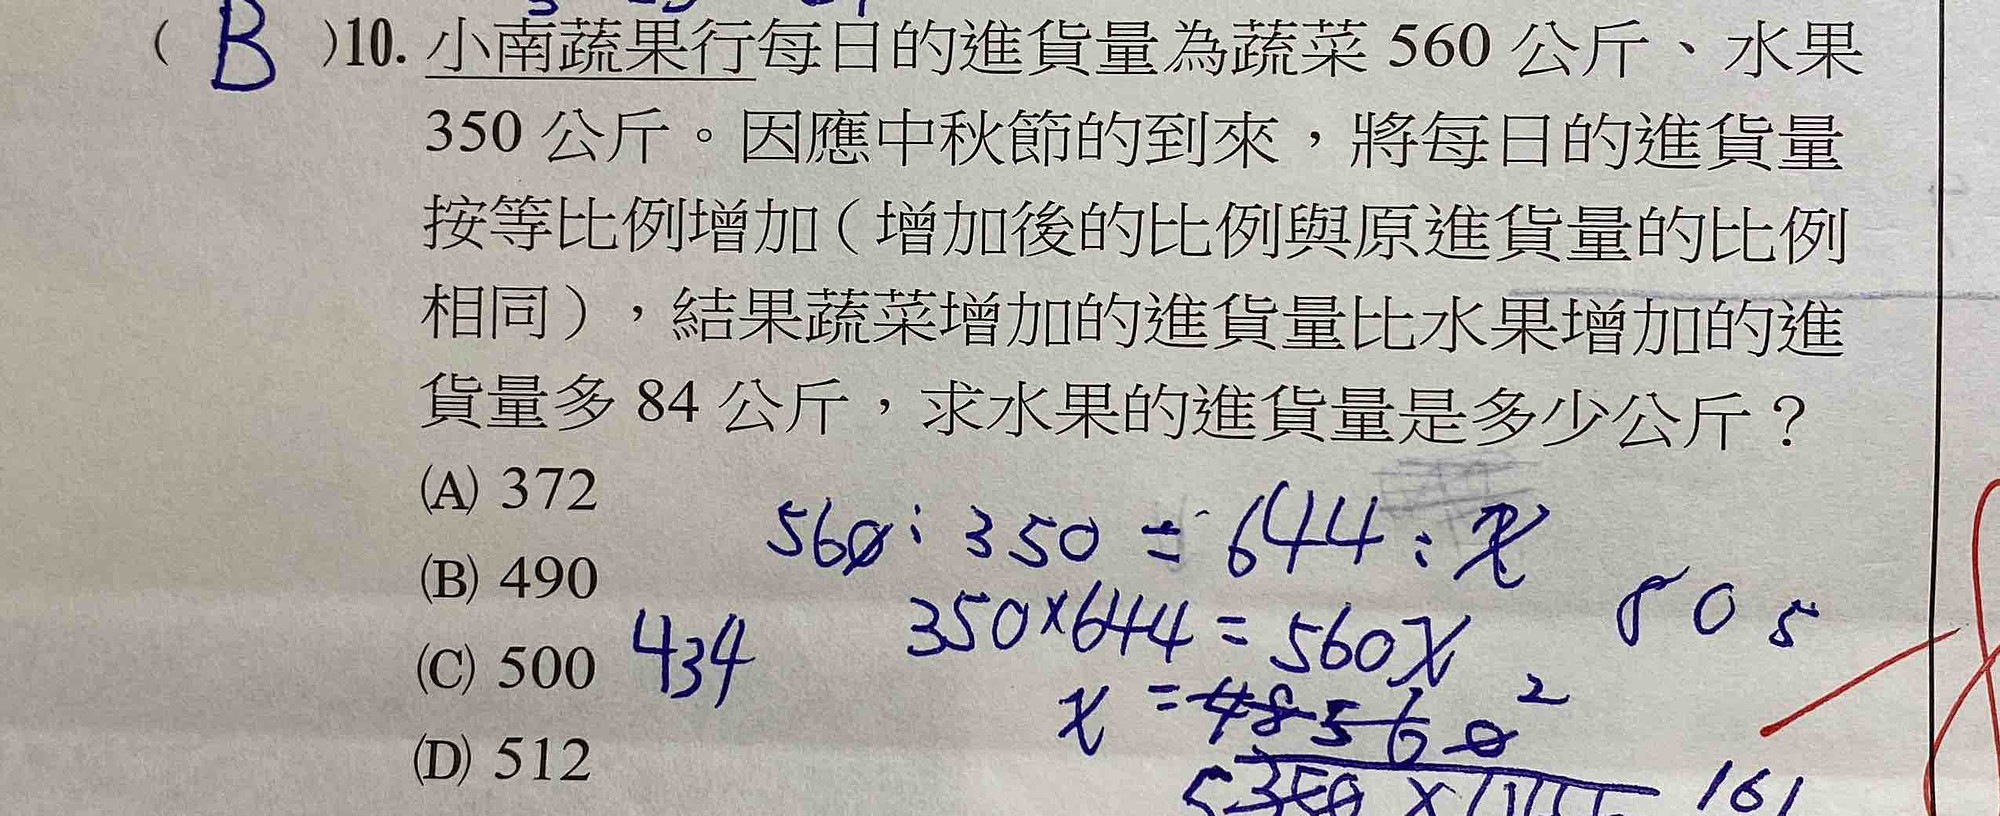 ( B )10. 小南蔬果行每日的進貨量為蔬菜 560 公斤、水果
350 公斤。因應中秋節的到來，將每日的進貨量
按等比例增加（增加後的比例與原進貨量的比例
相同），結果蔬菜增加的進貨量比水果增加的進
貨量多 84 公斤，求水果的進貨量是多少公斤？
(A) 372
560:350 = 644:x
(B) 490
350×644 = 560x
805
(C) 500
434
(D) 512
161